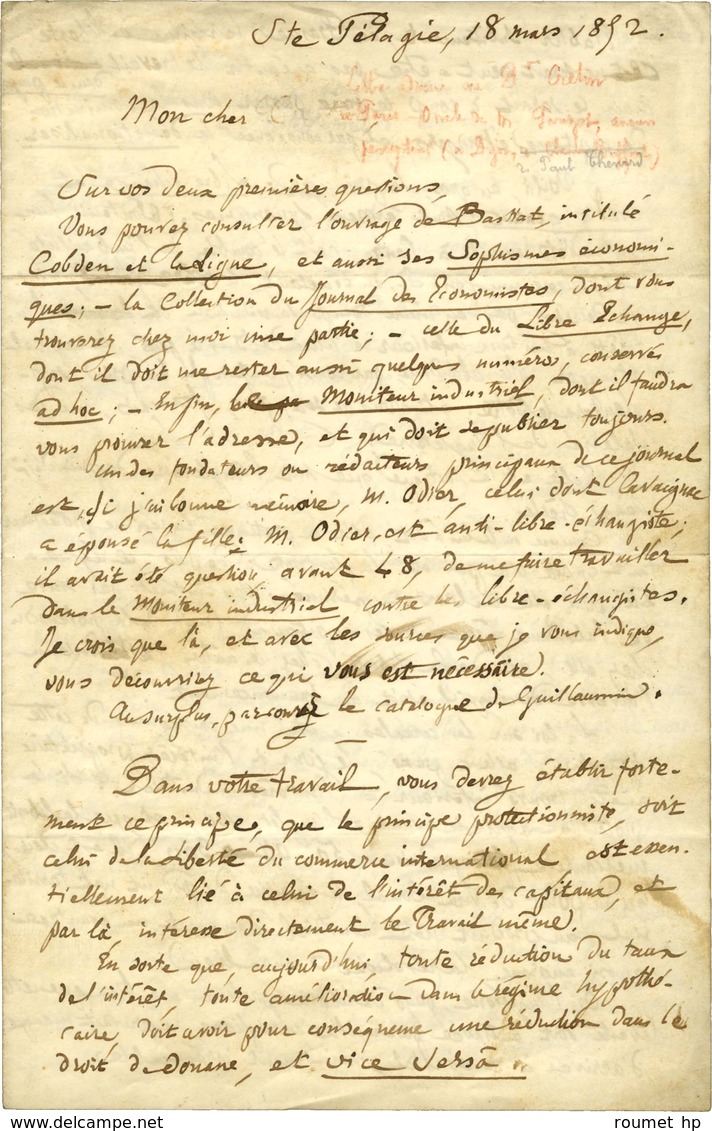 Ste Pélagie, 18 mars 1852.
Mon cher
Sur vos deux premières questions,
Vous pouvez consulter l'ouvrage de Bastiat, intitulé
Cobden et la Ligue, et aussi ses Sophismes économi-
ques; — la Collection du Journal des Economistes, dont vous
trouverez chez moi une partie; — celle du Libre Echange,
dont il doit me rester aussi quelques numéros, conservés
ad hoc; — Enfin, le Moniteur industriel, dont il faudra
vous procurer l'adresse, et qui doit se publier toujours.
Un des fondateurs ou rédacteurs principaux de ce journal
est, si j'ai bonne mémoire, M. Odier, celui dont Cavaignac
a épousé la fille; M. Odier, est anti-libre-échangiste;
il avait été question, avant 48, de me faire travailler
dans le Moniteur industriel contre les libre-échangistes.
Je crois que là, et avec les sources que je vous indique,
vous découvrirez ce qui vous est nécessaire.
Au surplus, parcourez le catalogue de Guillaumin.
—
Dans votre travail, vous devrez établir forte-
ment ce principe, que le principe protectionniste, soit
celui de la Liberté du commerce international est essen-
tiellement lié à celui de l'intérêt des capitaux, et
par là, intéresse directement le Travail même.
En sorte que, aujourd'hui, toute réduction du taux
de l'intérêt, toute amélioration dans le régime hypothé-
caire, doit avoir pour conséquence une réduction dans le
droit de douane, et vice versâ.
roumet hp